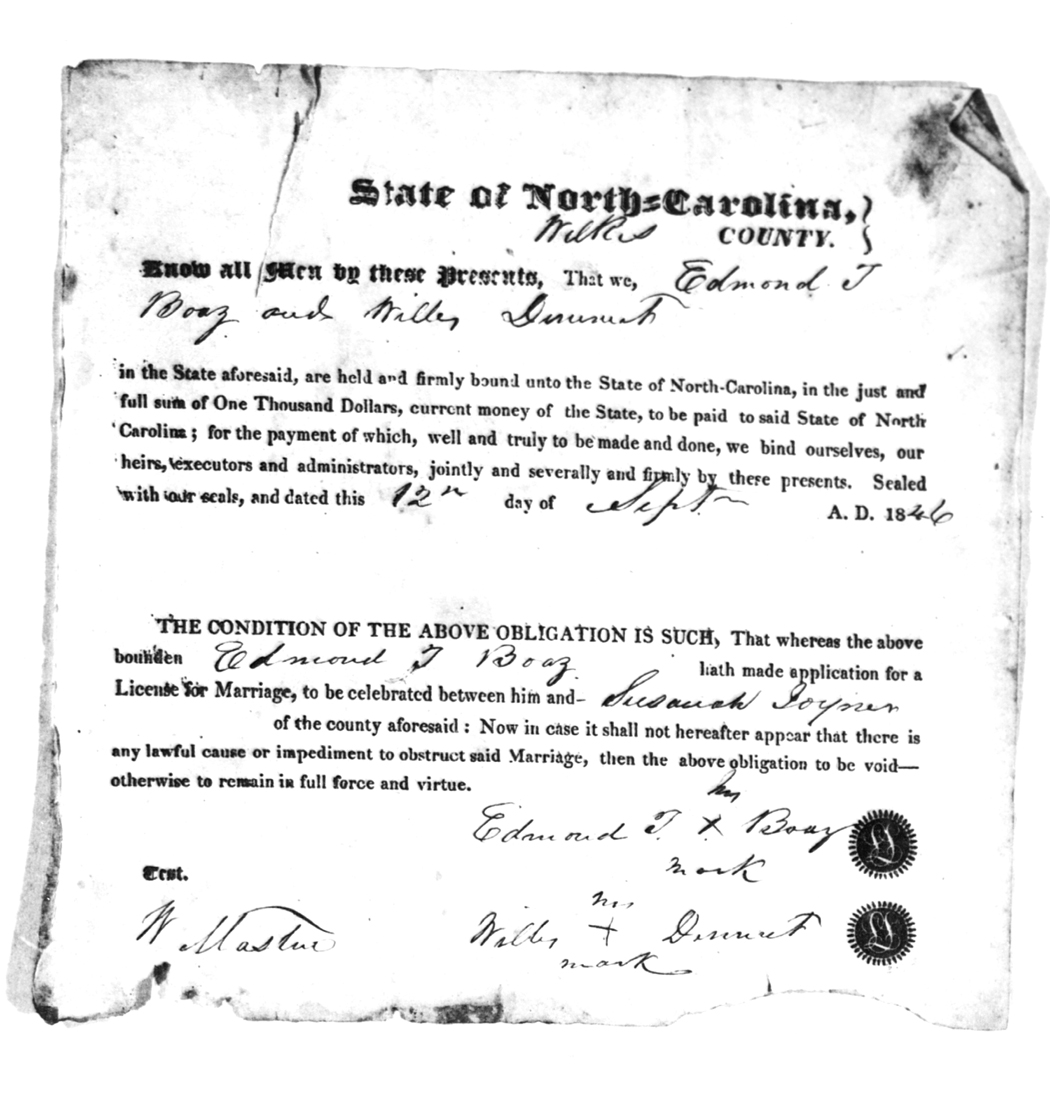 State of North-Carolina,
Wilkes COUNTY.
Know all Men by these Presents, That we, Edmond T
Boaz and Willey
in the State aforesaid, are held and firmly bound unto the State of North-Carolina, in the just and
full sum of One Thousand Dollars, current money of the State, to be paid to said State of North
Carolina; for the payment of which, well and truly to be made and done, we bind ourselves, our
heirs, executors and administrators, jointly and severally and firmly by these presents. Sealed
with our seals, and dated this 12th day of Sept A. D. 1846
THE CONDITION OF THE ABOVE OBLIGATION IS SUCH, That whereas the above
bounden Edmond T Boaz hath made application for a
License for Marriage, to be celebrated between him and- Susanah Joyner
of the county aforesaid: Now in case it shall not hereafter appear that there is
any lawful cause or impediment to obstruct said Marriage, then the above obligation to be void—
otherwise to remain in full force and virtue.
his
Edmond T. X Boaz
mark
Test.
his
W Mastin Willey X
mark